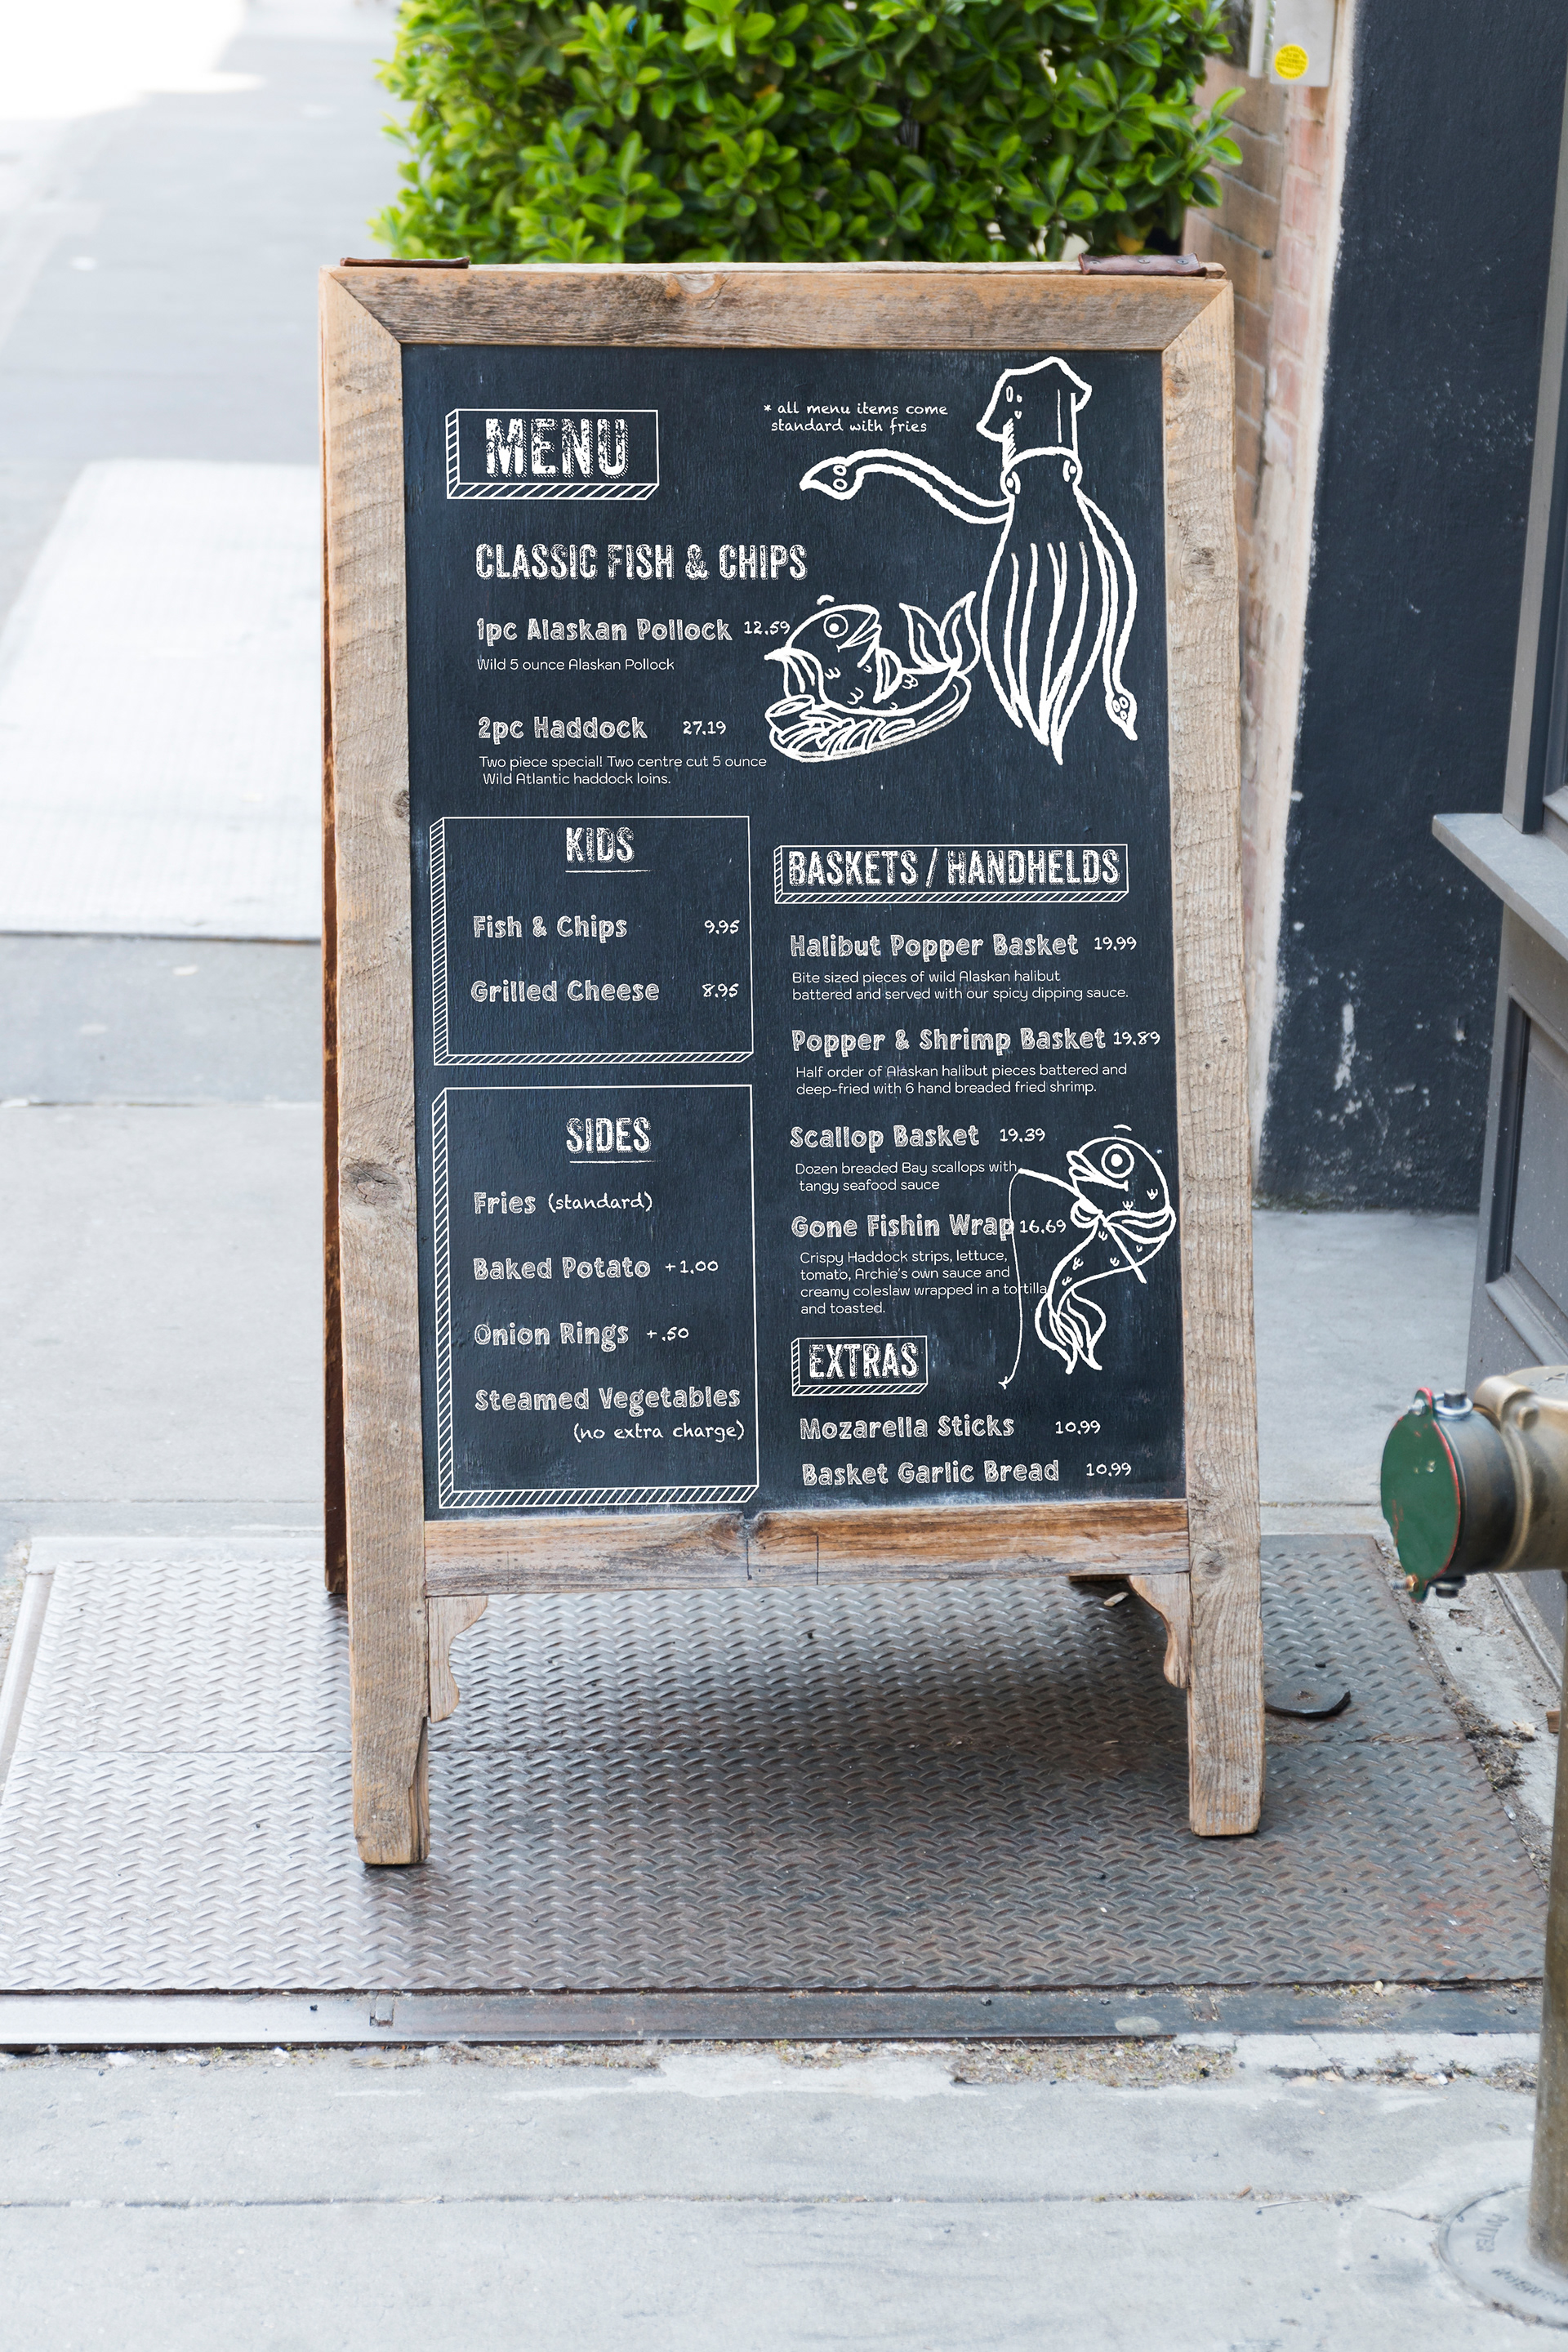 MENU
* all menu items come
standard with fries
CLASSIC FISH & CHIPS
1pc Alaskan Pollock 12.59
Wild 5 ounce Alaskan Pollock
2pc Haddock 27.19
Two piece special! Two centre cut 5 ounce
Wild Atlantic haddock loins.
KIDS
Fish & Chips 9.95
Grilled Cheese 8.95
SIDES
Fries (standard)
Baked Potato +1.00
Onion Rings +.50
Steamed Vegetables
(no extra charge)
BASKETS / HANDHELDS
Halibut Popper Basket 19.99
Bite sized pieces of wild Alaskan halibut
battered and served with our spicy dipping sauce.
Popper & Shrimp Basket 19.89
Half order of Alaskan halibut pieces battered and
deep-fried with 6 hand breaded fried shrimp.
Scallop Basket 19.39
Dozen breaded Bay scallops with
tangy seafood sauce
Gone Fishin Wrap 16.69
Crispy Haddock strips, lettuce,
tomato, Archie's own sauce and
creamy coleslaw wrapped in a tortilla
and toasted.
EXTRAS
Mozarella Sticks 10.99
Basket Garlic Bread 10.99